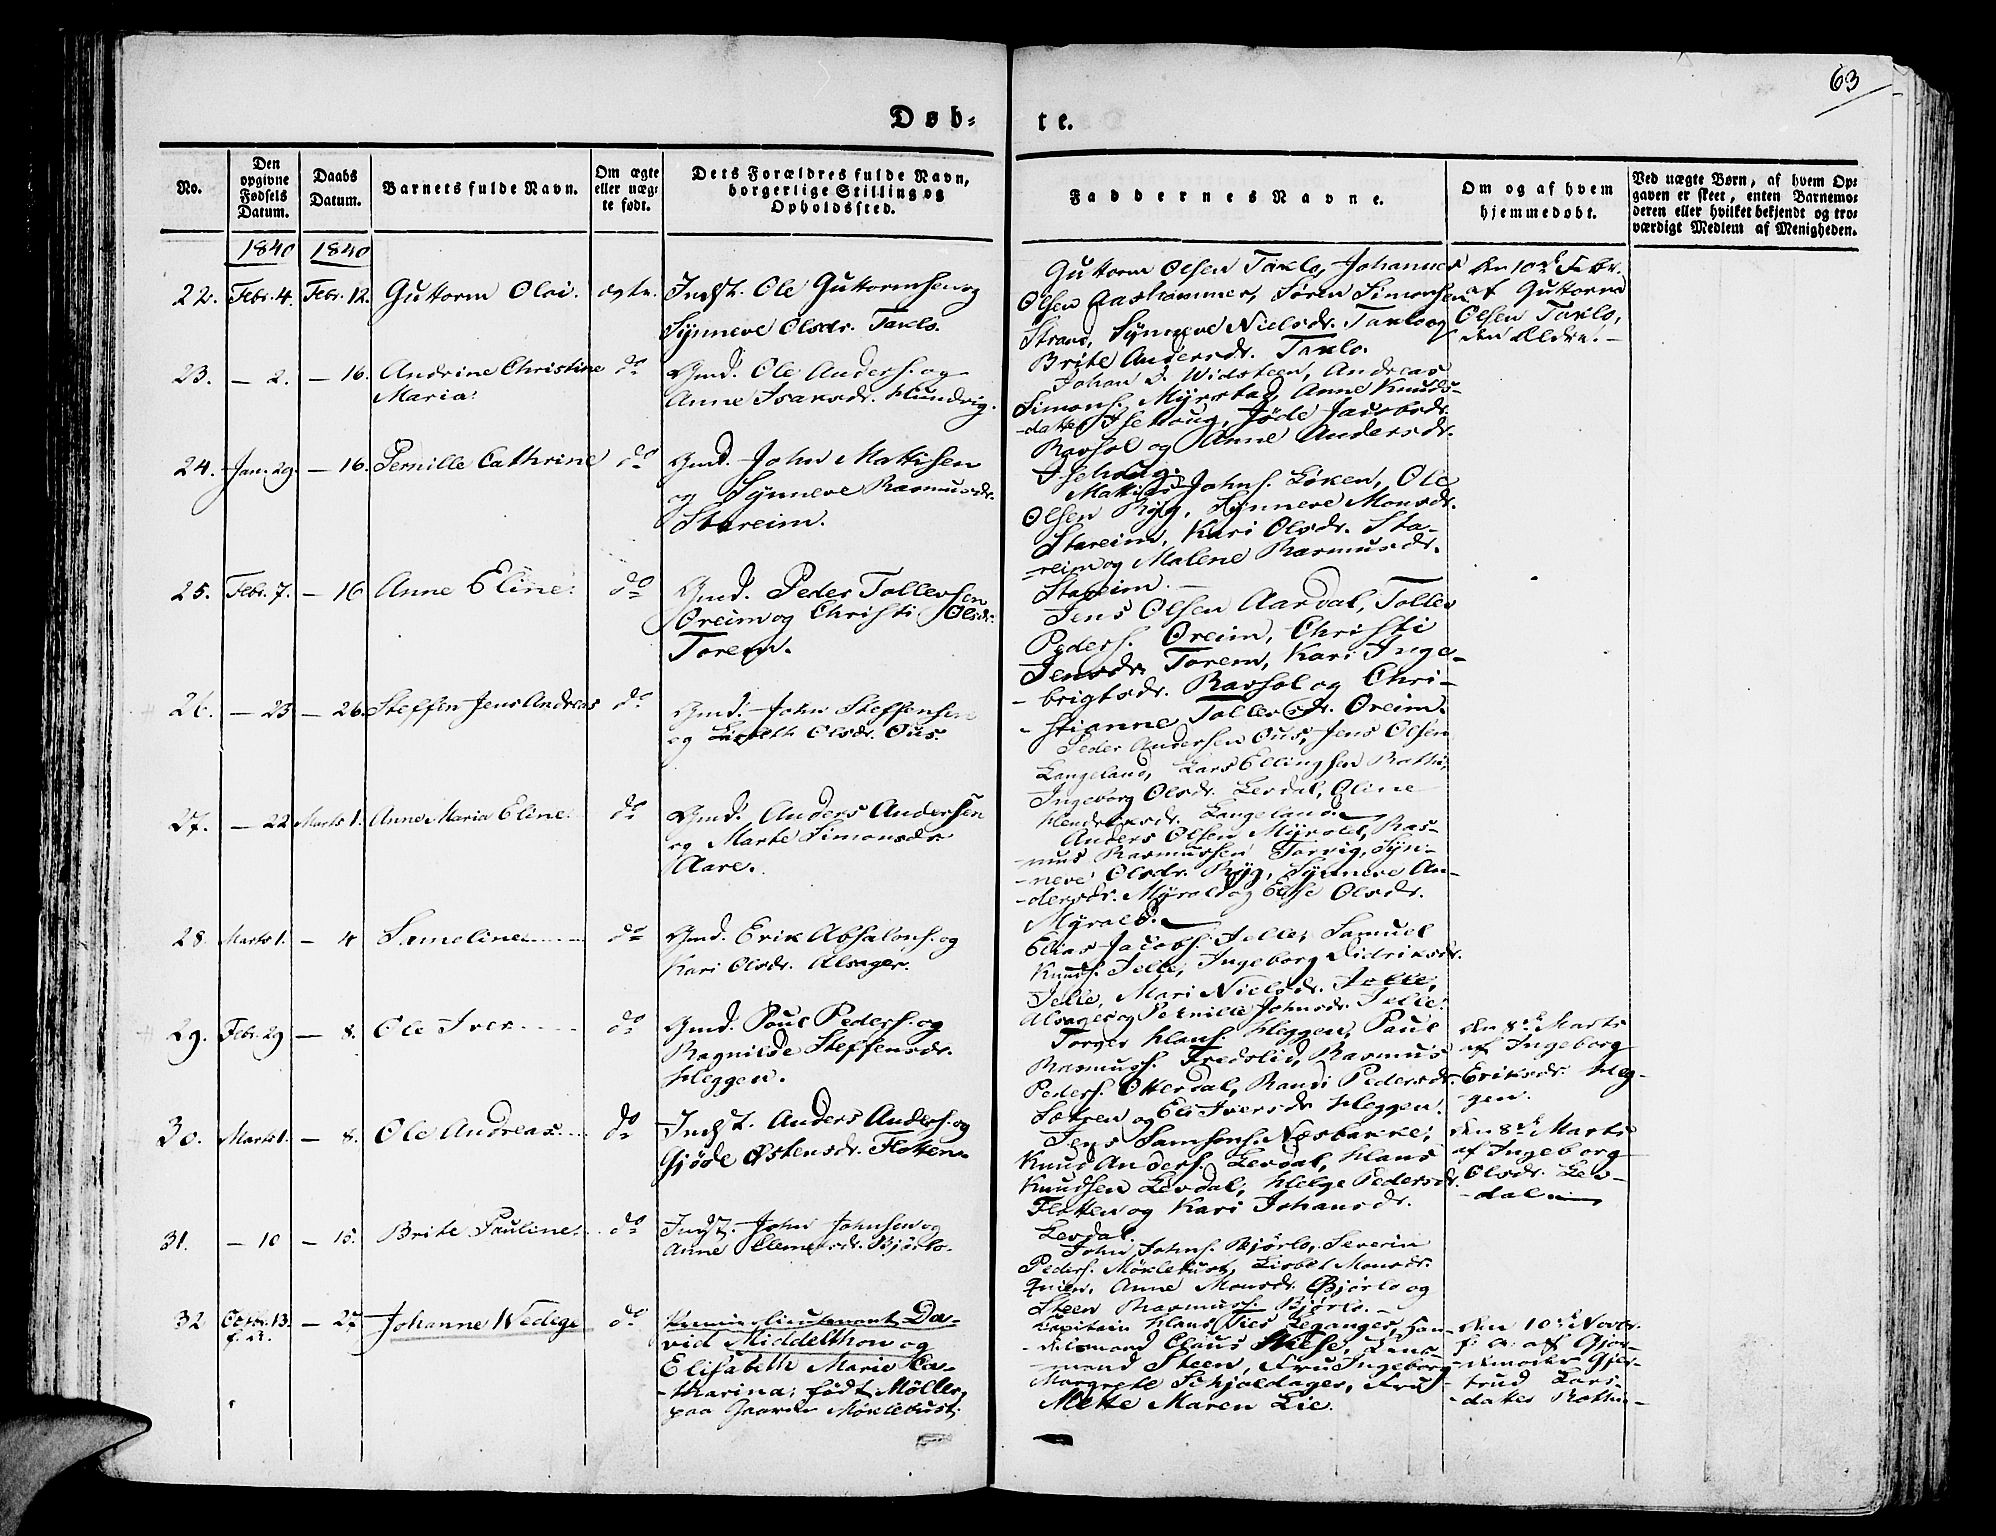 63
Døb-
te.
No.
Den
opgivne
Fødsels
Datum.
Daabs
Datum.
Barnets fulde Navn.
Om ægte
eller uæg-
te født.
Dets Forældres fulde Navn,
borgerlige Stilling og
Opholdssted.
Faddernes Navne.
Om og af hvem
hjemmedøbt.
Ved uægte Børn, af hvem Op-
gaven er skeet, enten Barnemo-
deren eller hvilket bekjendt og tro-
værdigt Medlem af Menigheden.
1840 1840
22. Febr. 4. Febr. 12. Guttorm Oloi. ægte. Indst. Ole Guttormsen og
Synneve Olsdr. Taklo.
Guttorm Olsen Taklo, Johannes
Olsen Aashammer, Søren Simonsen
Strand, Synneve Nielsdr. Taklo og
Brite Andersdr. Taklo.
den 10de Febr.
af Guttorm
Olsen Taklo,
den Ældre. -
23. - 2. - 16. Andrine Christine do Gmd. Ole Anders. og
Maria.
Anne Isaksdr. Hundvig.
Johan D. Widsteen, Andreas
Simons. Myrstad, Anne Knuds-
-datter Isehoug, Jøde Jacobsdr.
Ravhol og Anne Andersdr.
Isehoug.
24. Jan. 29. - 16. Pernille Cathrine do Gmd. John Mattisen
og Synneve Rasmusdr.
Stareim.
Mattias Johns. Løken, Ole
Olsen Ryg, Synneve Monsdr.
Stareim, Kari Olsdr. Sta-
-reim og Malene Rasmusdr.
Stareim.
25. Febr. 7. - 16 Anne Eline. do Gmd. Peder Tollevsen
Oreim og Christi Olsdr.
Torem.
Jens Olsen Aardal, Tollev
Peders. Oreim, Christi
Jensdr. Torem, Kari Inge-
-brigtsdr. Ravhol og Chri-
-stianne Tollevsdr. Oreim.
26. - 23 - 26. Steffen Jens Andreas do Gmd. John Steffensen
og Lisbeth Olsdr. Ous.
Peder Andersen Ous, Jens Olsen
Langeland, Lars Ellingsen Rothi,
Ingeborg Olsdr. Levdal, Oline
Hendriksdr. Langeland.
27. - 22 Marts 1. Anne Maria Eline. do Gmd. Anders Andersen
og Marte Simonsdr.
Aare.
Anders Olsen Myrold, Ras-
-mus Rasmussen Torvig, Syn-
-neve Olsdr. Ryg, Synneve An-
-dersdr. Myrold og Else Olsdr.
Myrold.
28. Marts 1. - 4 Semeline. do Gmd. Erik Absalons. og
Kari Olsdr. Alsager.
Elias Jacobs. Jelle, Samuel
Knuds. Jelle, Ingeborg Didriksdr.
Jelle, Mari Nielsdr. Jelle,
Alsager og Pernille Johnsdr. Jelle.
29. Febr. 29 - 8. Ole Iver. do Gmd. Poul Peders. og
Ragnilde Steffensdr.
Heggen.
Torger Hans. Heggen, Paul
Rasmuss. Fredslid, Rasmus
Peders. Otterdal, Randi Pedersdr.
Sætren og Eli Iversdr. Heggen.
den 8de Marts
af Ingeborg
Eriksdr. Heg-
gen.
30. Marts 1. - 8. Ole Andreas. do Indst. Anders Anders. og
Gjøde Østensdr. Flotten.
Jens Samsons. Næsbakke,
Knud Anders. Levdal, Hans
Knudsen Levdal, Helge Pedersdr.
Flotten og Kari Johansdr.
Levdal.
den 8de Marts
af Ingeborg
Olsdr. Lev-
-dal.
31. - 10 - 15. Brite Pauline. do Indst. John Johnsen og
Anne Clemetsdr. Bjørlo.
John Johns. Bjørlo, Severin
Peders. Møklebust, Lisbet Monsdr.
Anne Monsdr. Bjørlo og
Steen Rasmus. Bjørlo. -
32 Octbr. 13. - 27 Johanne Wedege do Premierlieutenant Da-
f. A.
vid Middelthon og
Elisabeth Marie Ca-
-tharina, født Møller,
paa Gaarden Møklebust.
Capitain Hans Ties Leganger, Han-
-delsmand Claus Wiese, Lens-
mand Steen, Fru Ingeborg
Margrete Schjoldager, Fru
Mette Maren Lie.
den 10de Novbr.
f. A. af Gjor-
-demoder Gjer-
-trud Lars-
-datter Rothi-